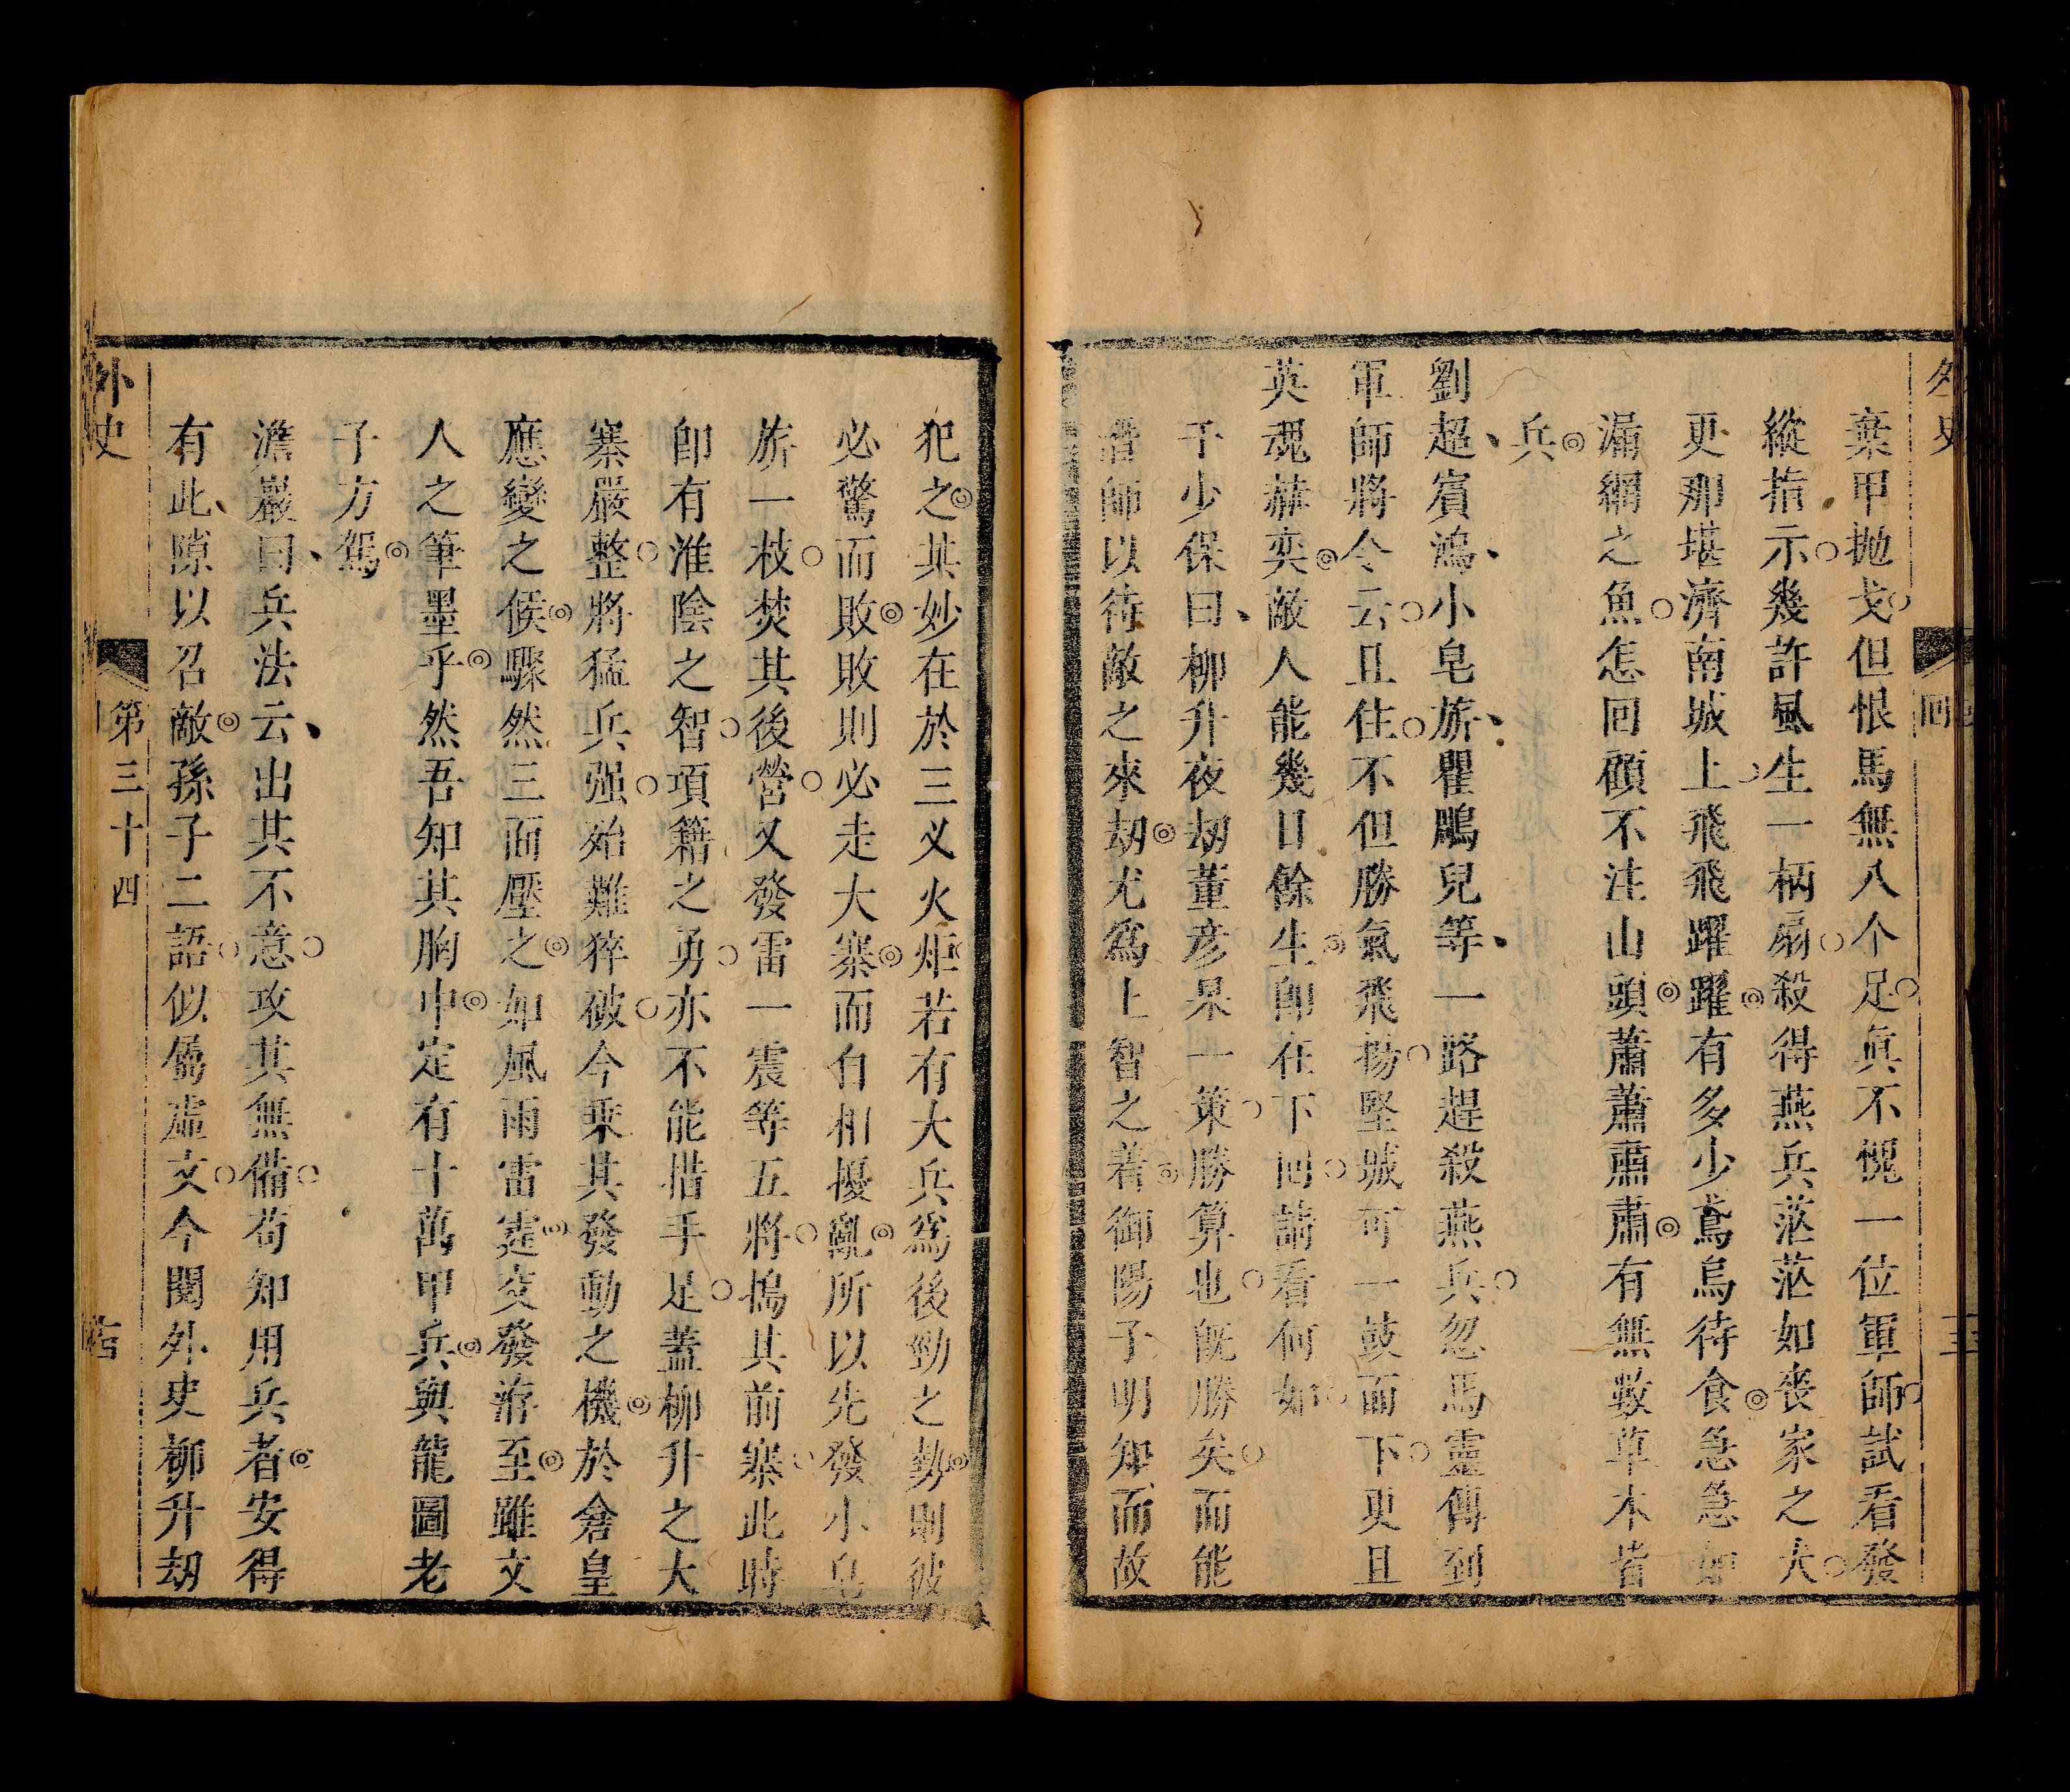 外史
回
棄甲拋戈但恨馬無八个足眞不愧一位軍師試看發
縱指示幾許風生一柄扇殺得燕兵茫茫如喪家之犬
更那堪濟南城上飛飛躍躍有多少鳶烏待食急急如
漏網之魚怎回顧不注山頭蕭蕭肅肅有無數草木皆
兵
劉超賓鴻小皂旂瞿鵰兒等一路趕殺燕兵忽馬靈傳到
軍師將令云且住不但勝氣飛揚堅城可一鼓而下更且
英魂赫奕敵人能幾日餘生卽在下回請看何如
于少保曰柳升夜刼董彥杲一策勝算也旣勝矣而能
潛師以待敵之來刼尤爲上智之着御陽子明知而故
犯之其妙在於三义火炬若有大兵爲後勁之勢則彼
必驚而敗敗則必走大寨而自相擾亂所以先發小皂
旂一枝焚其後營又發雷一震等五將搗其前寨此時
卽有淮陰之智項籍之勇亦不能措手足蓋柳升之大
寨嚴整將猛兵强殆難猝破今乘其發動之機於倉皇
應變之候驟然三面壓之如風雨雷霆交發洊至雖文
人之筆墨乎然吾知其胸中定有十萬甲兵與龍圖老
子方駕
澹巖曰兵法云出其不意攻其無備苟知用兵者安得
有此隙以召敵孫子二語似屬虛文今閱外史柳升刼
外史
第三十四